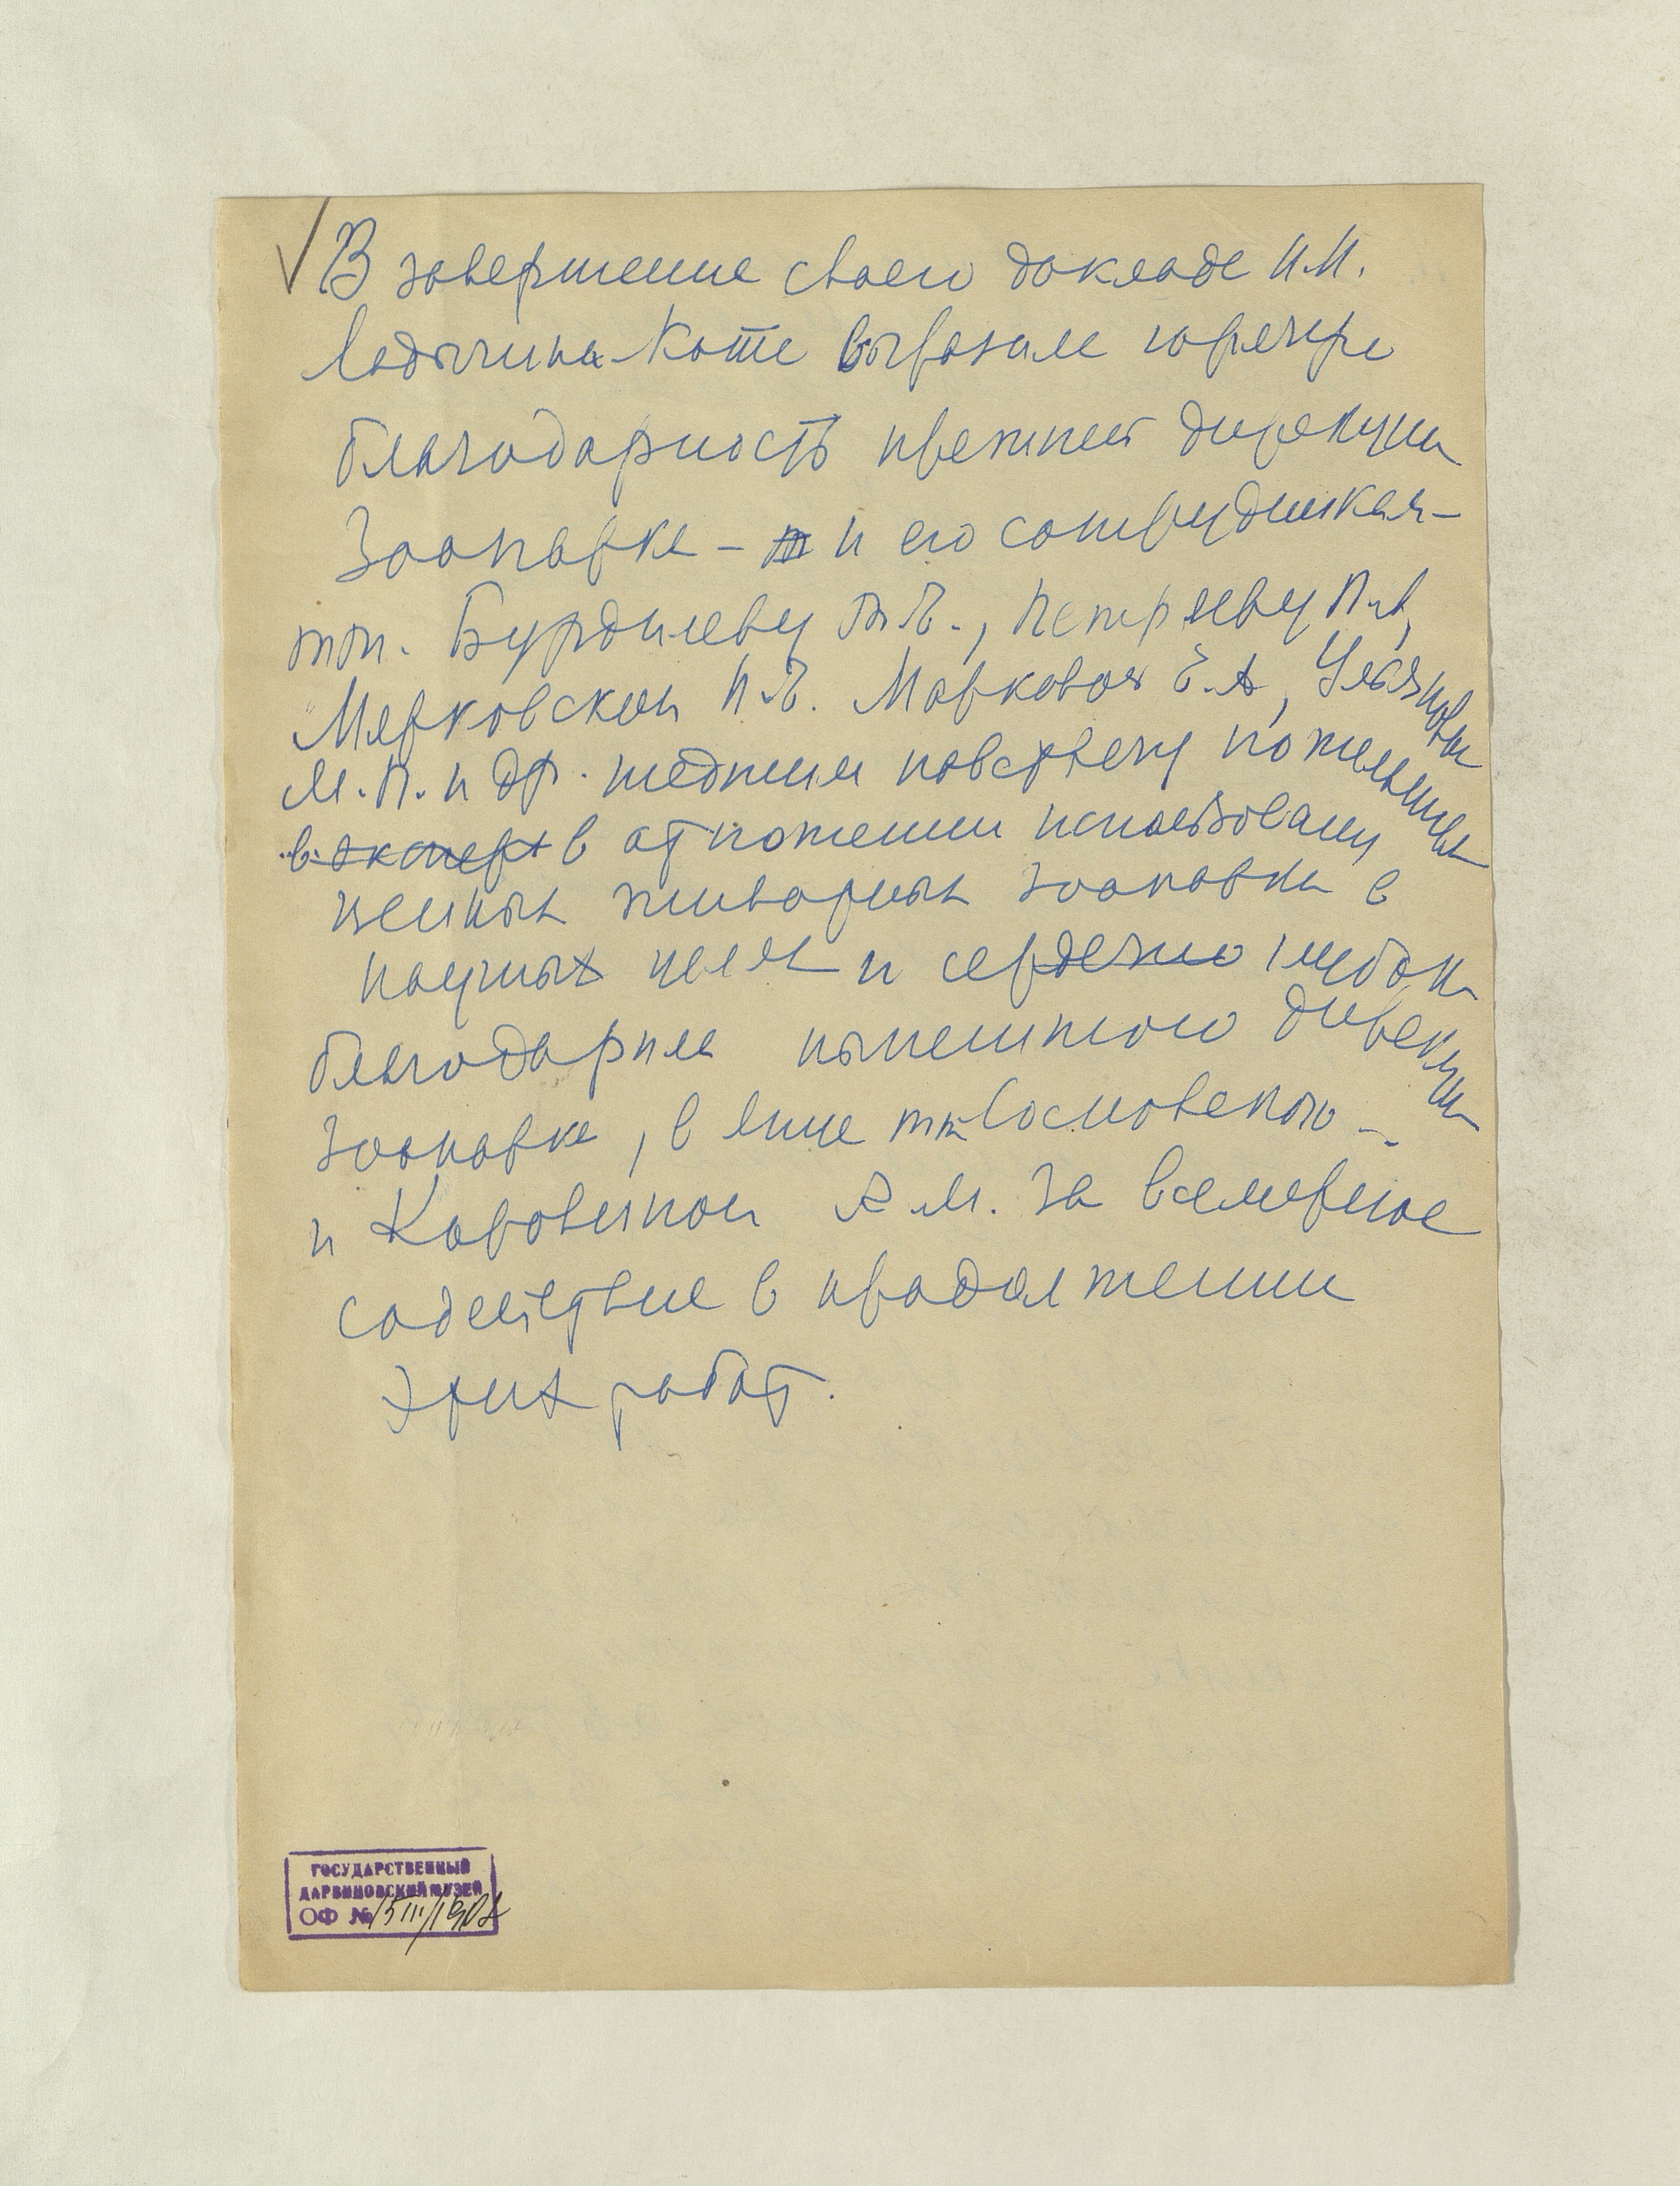 В завершение своего доклада Н.Н.
Ладыгина-Котс выразила горячую
благодарность прежней дирекции
Зоопарка – и его сотрудникам –
тт. Бурделеву Т.Е., Петряеву П.А,
Мярковской Н.Е. Марковой Е.А, Улановой
М.П. и др. шедшим навстречу пожеланиям
в экспер в отношении использования
ценных животных зоопарка в
научных целях и сердечно глубоко
благодарила нынешнюю дирекцию
Зоопарка, в лице тт Сосновского –
и Коровиной А М. за всемерное
содействие в продолжении
этих работ.
ГОСУДАРСТВЕННЫЙ
ДАРВИНОВСКИЙ МУЗЕЙ
ОФ №